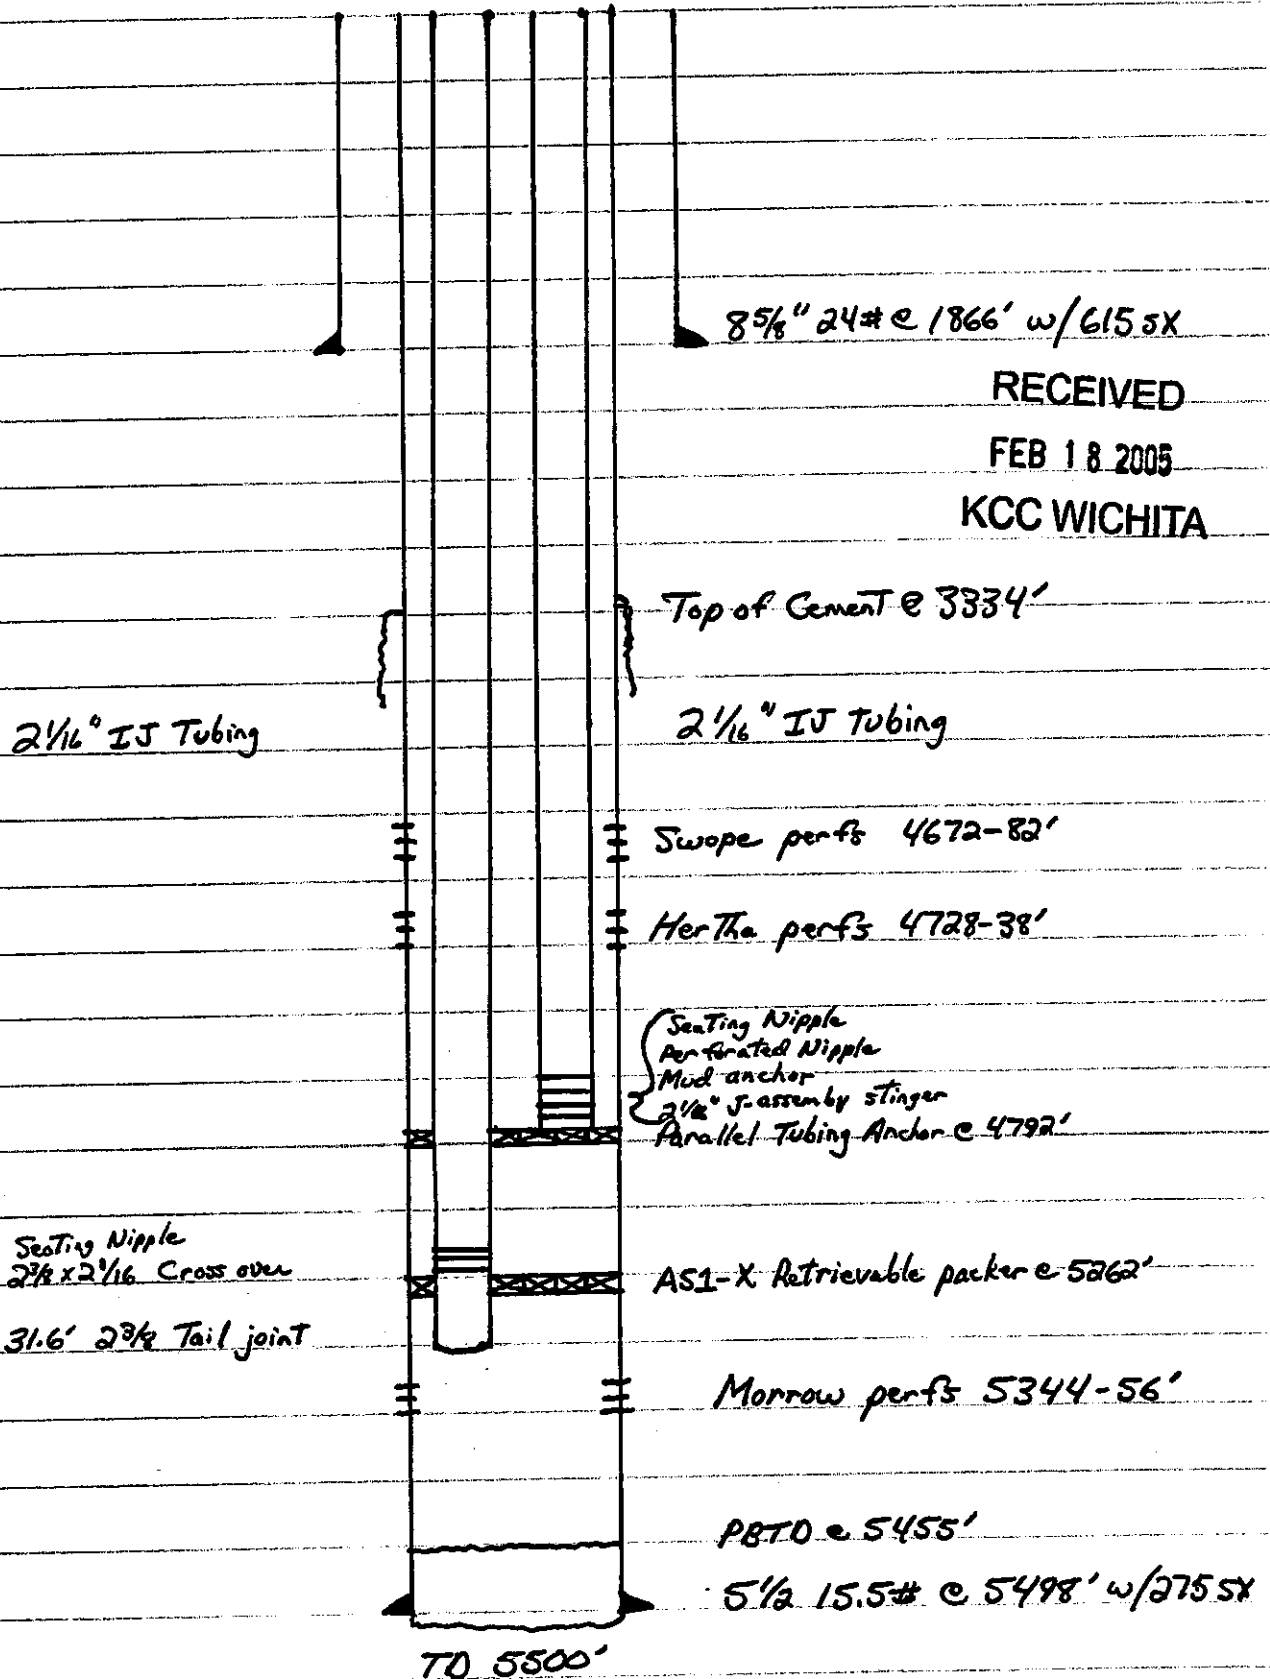 8 5/8" 24# @ 1866' w/615 sx
RECEIVED
FEB 18 2005
KCC WICHITA
Top of Cement @ 3334'
2 1/16" IJ Tubing
2 1/16" IJ Tubing
Swope perfs 4672-82'
Hertha perfs 4728-38'
Seating Nipple
Perforated Nipple
Mud anchor
2 1/16" J-assemby stinger
Parallel Tubing Anchor @ 4792'
Seating Nipple
2 3/8 x 2 1/16 Cross over
AS1-X Retrievable packer @ 5262'
31.6' 2 3/8 Tail joint
Morrow perfs 5344-56'
PBTD @ 5455'
5 1/2 15.5# @ 5498' w/275 sx
TD 5500'